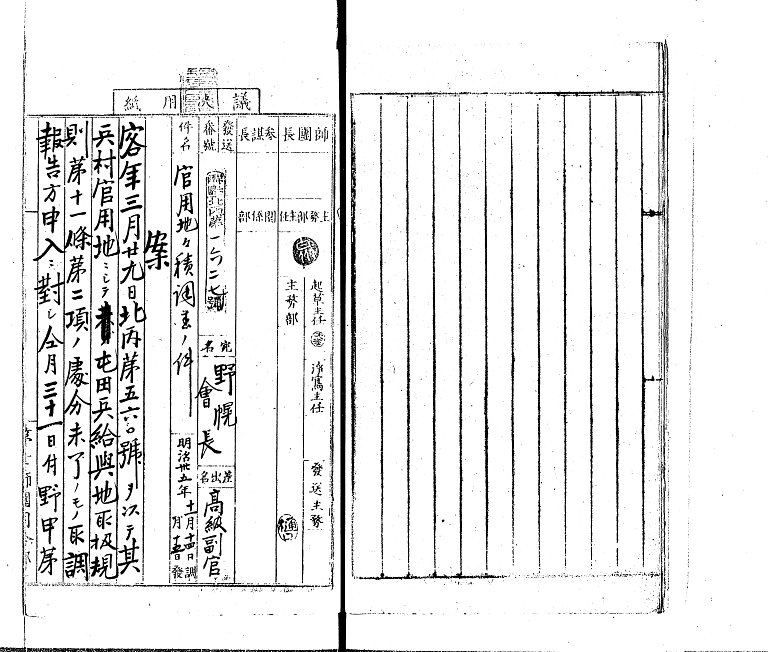 議決用紙
師團長
參謀長
主務部主任
關係部
起草主任
淨寫主任
發送主務
主務部
樋口
發送番號
一六二七號
宛名
野幌會長
差出名
高級副官
件名
官用地々積調查ノ件
明治卅五年十一月十四日調
月十五日發
案
客年三月廿九日北丙第五六〇號ヲ以テ其
兵村官用地ニシテ屯田兵給與地取扱規
則第十一條第二項ノ處分未了ノモノ取調
報告方申入ニ對シ仝月三十一日付野甲第